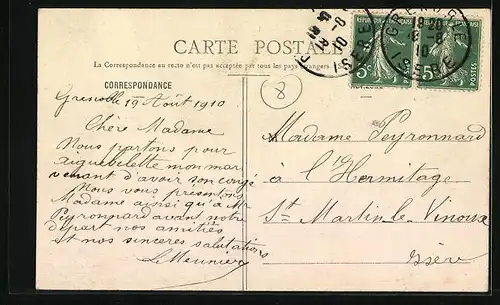 CARTE POSTALE
La Correspondance au recto n'est pas acceptée par tous les pays étrangers.
CORRESPONDANCE
Grenoble 19 Août 1910
Chère Madame
Nous partons pour
aiguebelette mon mari
venant d'avoir son congé
Nous vous présentons
Madame ainsi qu'à Mr
Peyronnard avant notre
départ nos amitiés
et nos sincères salutations
L Meunier
8
REPUBLIQUE FRANÇAISE
5c
POSTES
GRENOBLE
ISERE
Madame Peyronnard
à l'Hermitage
St Martin le Vinoux
Isère